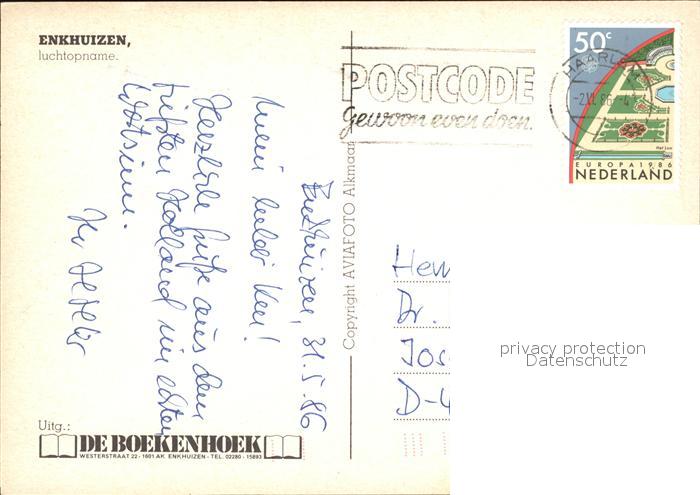 ENKHUIZEN,
luchtopname.
POSTCODE
gewoon even doen.
HAARLEM
-2.VI.86.-4
50c
Het Loo
EUROPA 1986
NEDERLAND
Enkhuizen, 31.5.86
Mein lieber Herr!
Herzliche Grüße aus dem
tiefsten Holland im echten
Wortsinn.
Ihr
Copyright AVIAFOTO Alkmaar
Dr.
Jos
D-4
privacy protection
Datenschutz
Uitg.:
DE BOEKENHOEK
WESTERSTRAAT 22 - 1601 AK ENKHUIZEN - TEL. 02280 - 15893